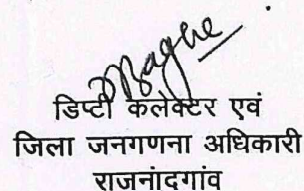 डिप्टी कलेक्टर एवं
जिला जनगणना अधिकारी
राजनांदगांव